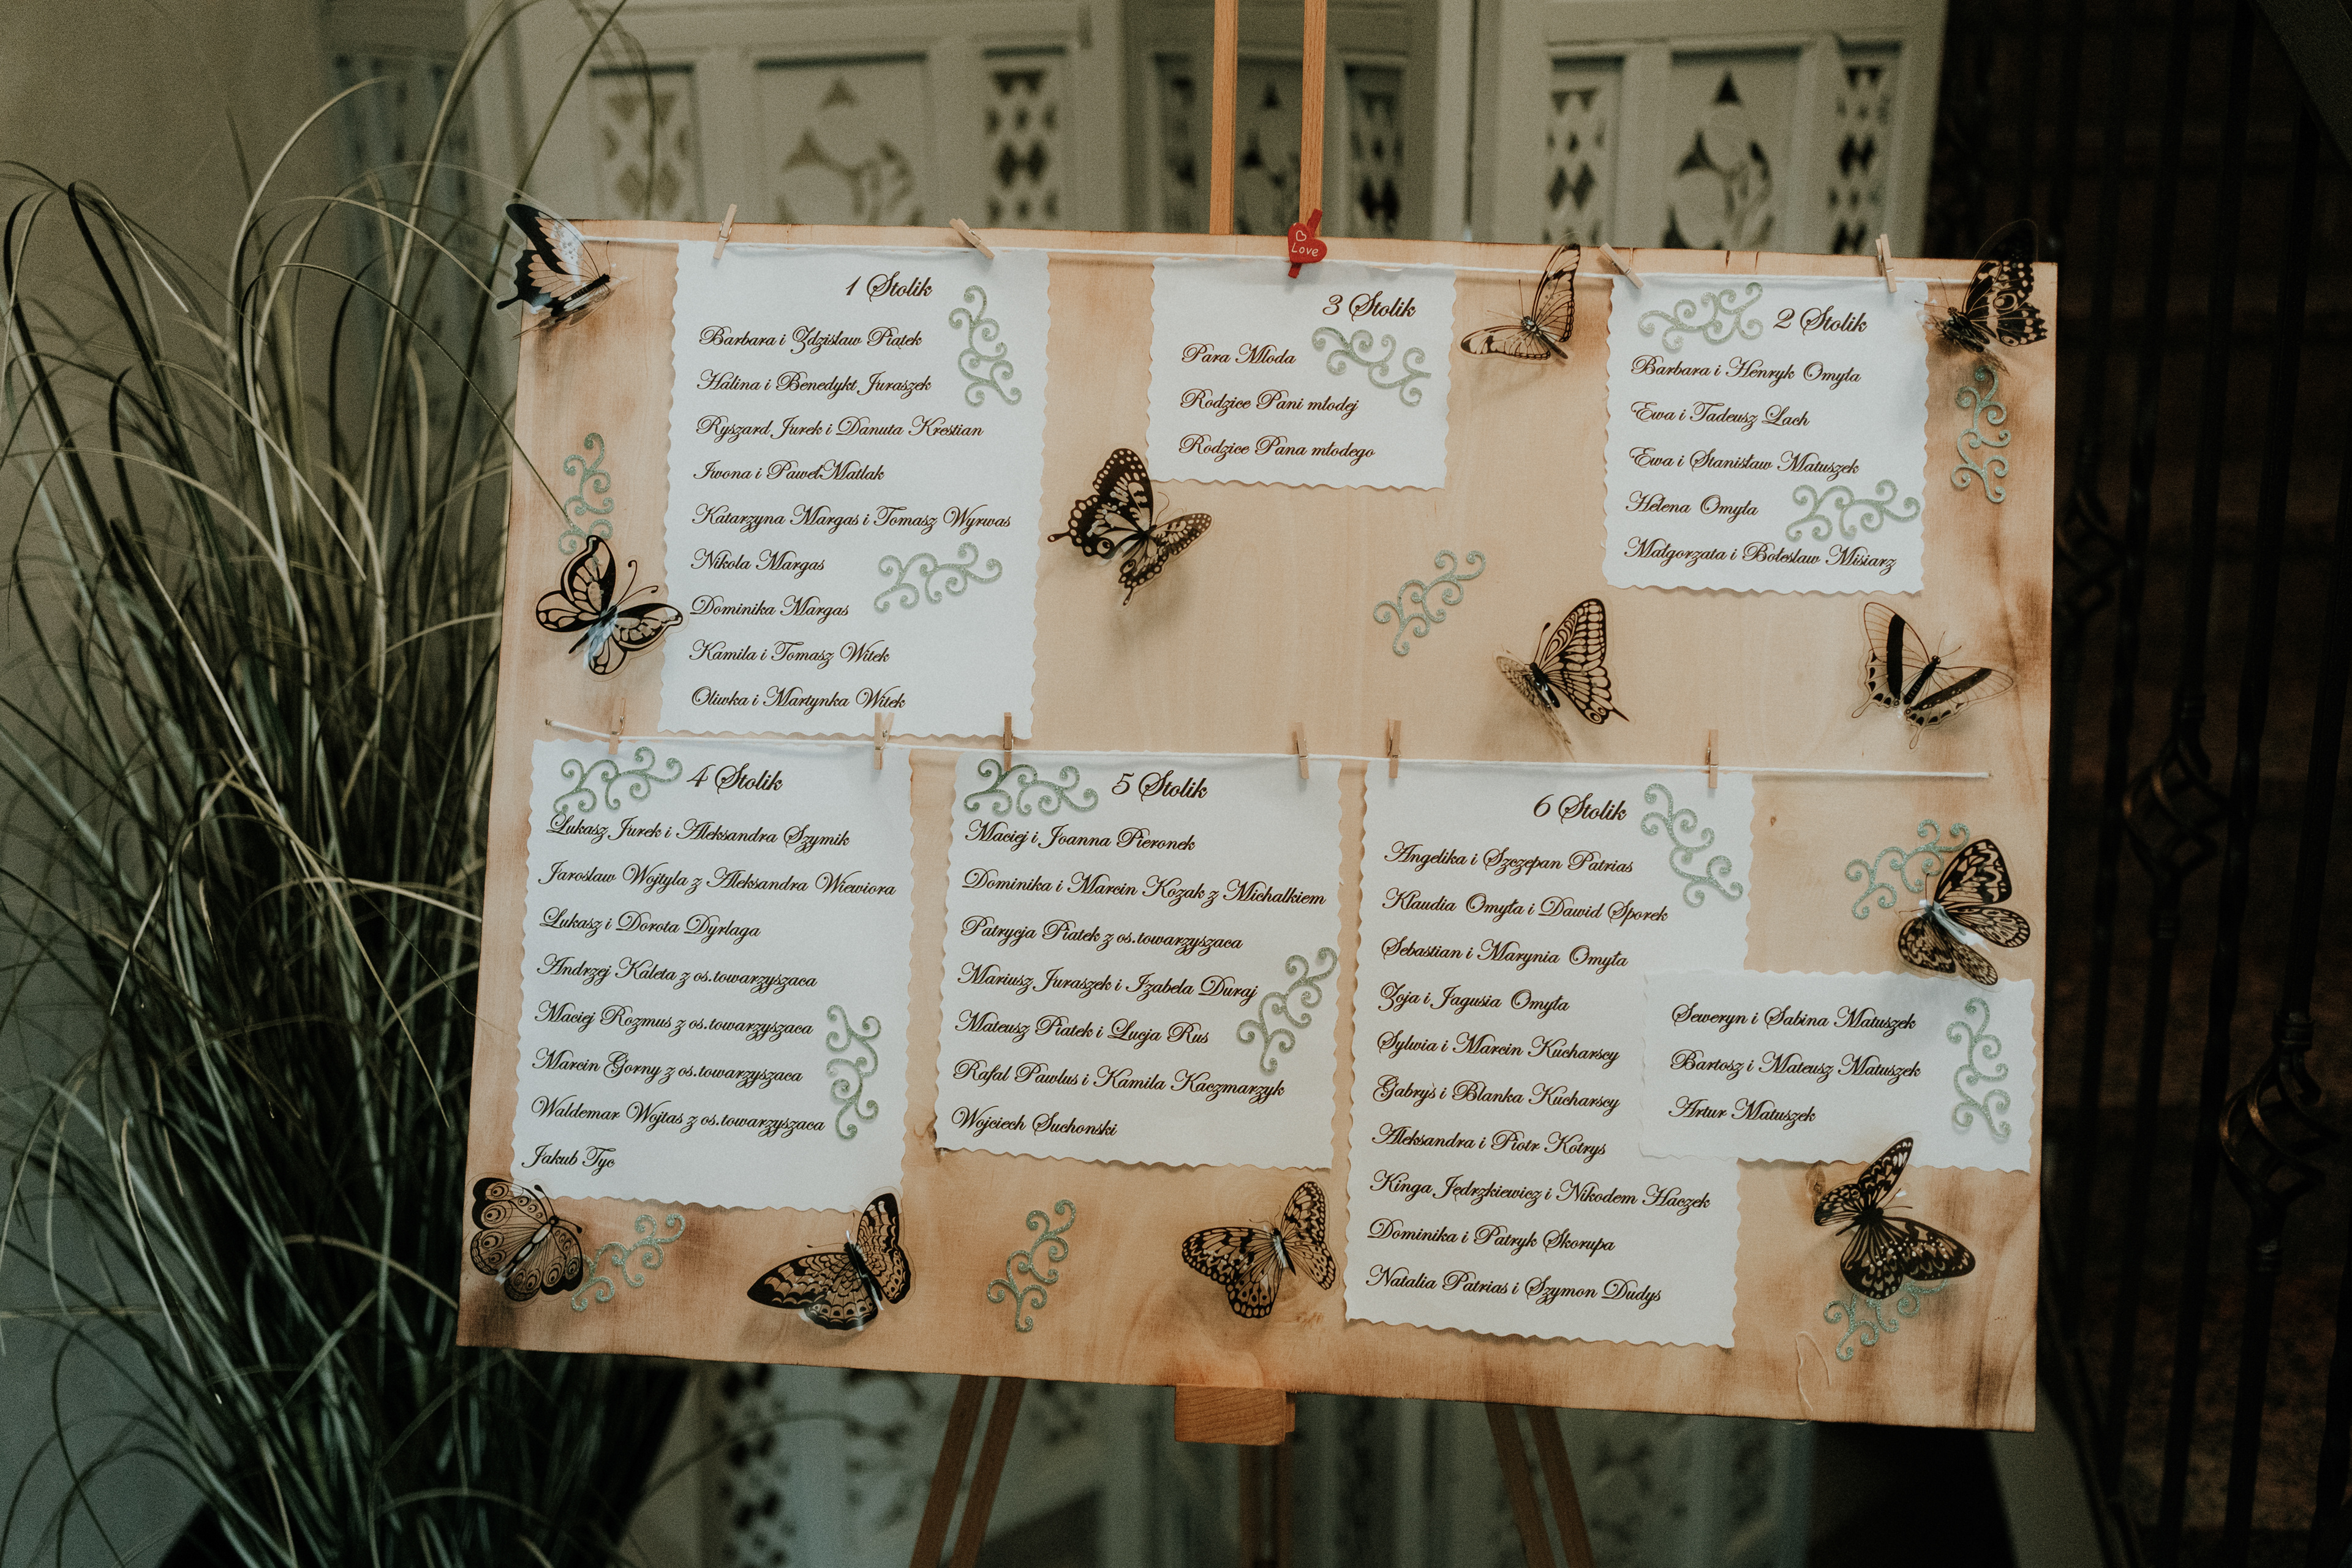 Love
1 Stolik
Barbara i Zdzislaw Piątek
Halina i Benedykt Juraszek
Ryszard Jurek i Danuta Krestian
Iwona i Paweł Matlak
Katarzyna Margas i Tomasz Wyrwas
Nikola Margas
Dominika Margas
Kamila i Tomasz Witek
Oliwka i Martynka Witek
3 Stolik
Para Mloda
Rodzice Pani mlodej
Rodzice Pana młodego
2 Stolik
Barbara i Henryk Omyła
Ewa i Tadeusz Lach
Ewa i Stanisław Matuszek
Helena Omyła
Małgorzata i Bolesław Misiarz
4 Stolik
Łukasz Jurek i Aleksandra Szymik
Jaroslaw Wojtyla z Aleksandra Wiewiora
Lukasz i Dorota Dyrlaga
Andrzej Kaleta z os.towarzyszaca
Maciej Rozmus z os.towarzyszaca
Marcin Gorny z os.towarzyszaca
Waldemar Wojtas z os.towarzyszaca
Jakub Tyc
5 Stolik
Maciej i Joanna Pieronek
Dominika i Marcin Kozak z Michalkiem
Patrycja Piatek z os.towarzyszaca
Mariusz Juraszek i Izabela Duraj
Mateusz Piatek i Lucja Rus
Rafal Pawlus i Kamila Kaczmarzyk
Wojciech Suchonski
6 Stolik
Angelika i Szczepan Patrias
Klaudia Omyła i Dawid Sporek
Sebastian i Marynia Omyła
Zoja i Jagusia Omyła
Sylwia i Marcin Kucharscy
Gabryś i Blanka Kucharscy
Aleksandra i Piotr Kotrys
Kinga Jędrzkiewicz i Nikodem Haczek
Dominika i Patryk Skorupa
Natalia Patrias i Szymon Dudys
Seweryn i Sabina Matuszek
Bartosz i Mateusz Matuszek
Artur Matuszek